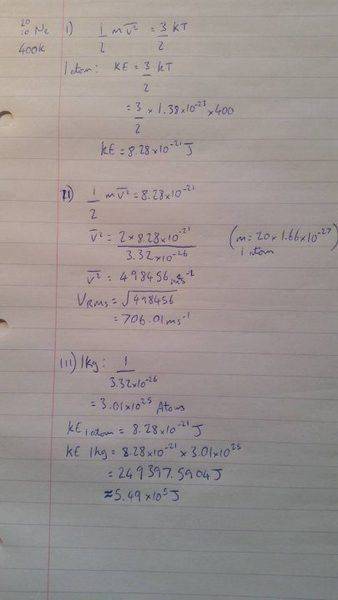 ²⁰₁₀Ne i) 1/2 m v̄² = 3/2 kT
400k
1 atom: KE = 3/2 kT
= 3/2 × 1.38×10⁻²³ × 400
KE = 8.28×10⁻²¹ J
ii) 1/2 m v̄² = 8.28×10⁻²¹
v̄² = 2×8.28×10⁻²¹ / 3.32×10⁻²⁶ (m = 20×1.66×10⁻²⁷)
1 atom
v̄² = 498456 ms⁻¹
VRMS = √498456
= 706.01 ms⁻¹
iii) 1kg: 1 / 3.32×10⁻²⁶
= 3.01×10²⁵ Atoms
KE 1 atom = 8.28×10⁻²¹ J
KE 1kg = 8.28×10⁻²¹ × 3.01×10²⁵
= 249397.5904 J
≈ 5.49×10⁵ J